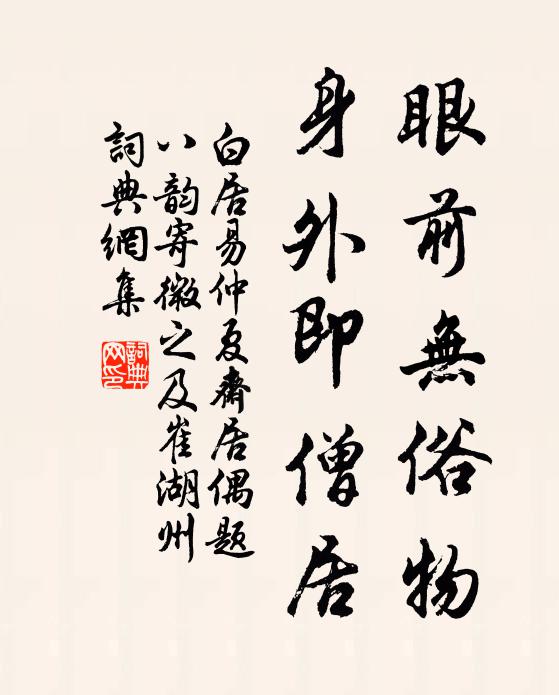 眼前無俗物
身外即僧居
白居易仲夏齋居偶題
八韵寄微之及崔湖州
詞典網集
詞典網印